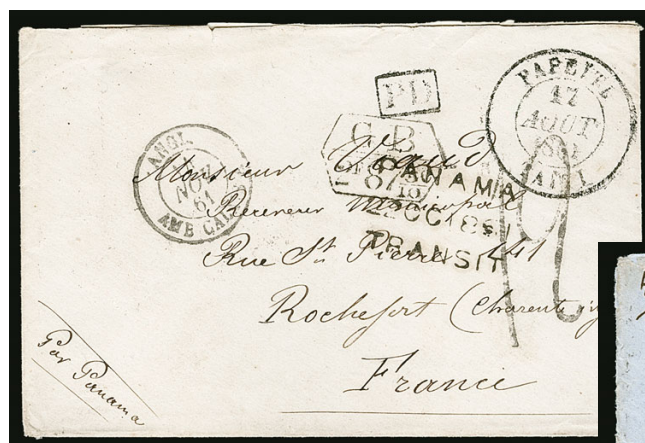 PD
PAPEETE
17
AOUT
TAITI
ANGL.
NOV
AMB. CALAIS
G B
PANAMA
TRANSIT
Monsieur
Receveur Municipal
Rue St Pierre 141
Rochefort (Charente
France
Par Panama